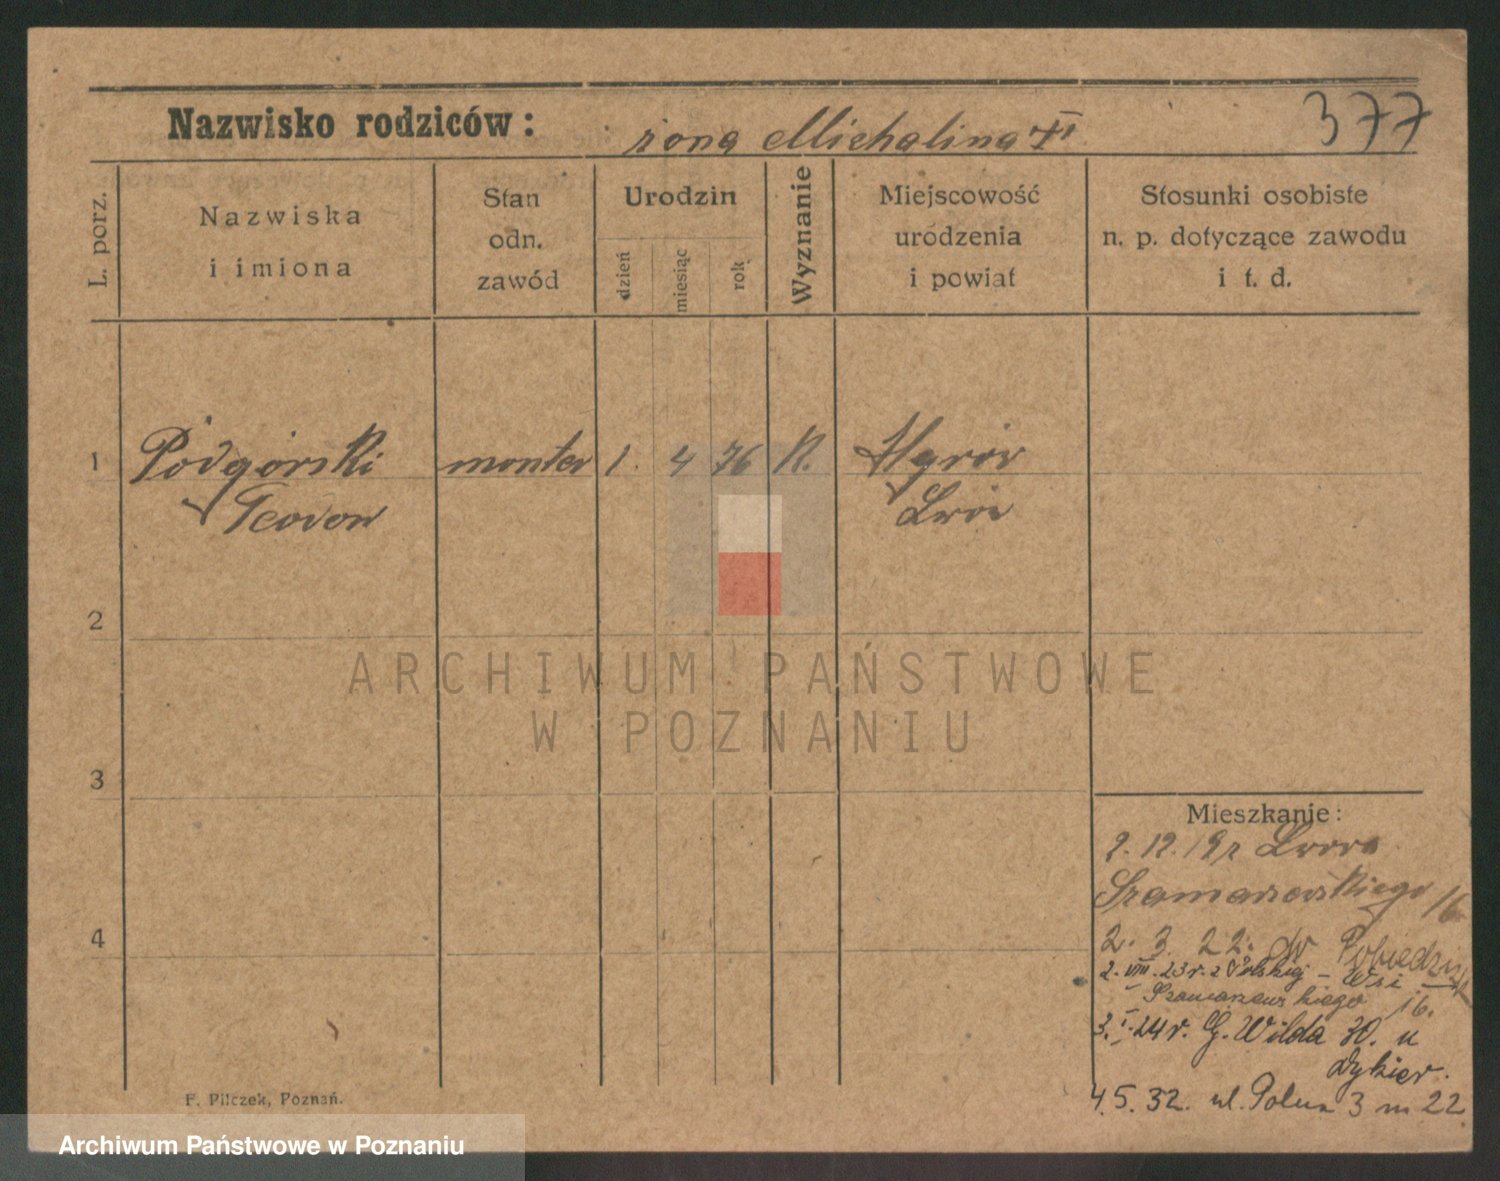 377
Nazwisko rodziców: żona Michalina
L. porz.
Nazwiska
i imiona
Stan
odn.
zawód
Urodzin
dzień
miesiąc
rok
Wyznanie
Miejscowość
urodzenia
i powiat
Stosunki osobiste
n. p. dotyczące zawodu
i t. d.
1 Pódgórski monter 1. 4 76 K.
Teodor
2
3
4
ARCHIWUM PAŃSTWOWE
W POZNANIU
Mieszkanie:
2. 12. 19 z Lwowa
Szamarzewskiego 16
2. 3. 22. do
2. VIII. 23 r. z Polskiej - Wsi
Szamarzewskiego 16.
3. I. 24 r. G. Wilda 30. u
Dykier.
4.5.32. ul. Polna 3 m 22
F. Pilczek, Poznań.
Archiwum Państwowe w Poznaniu